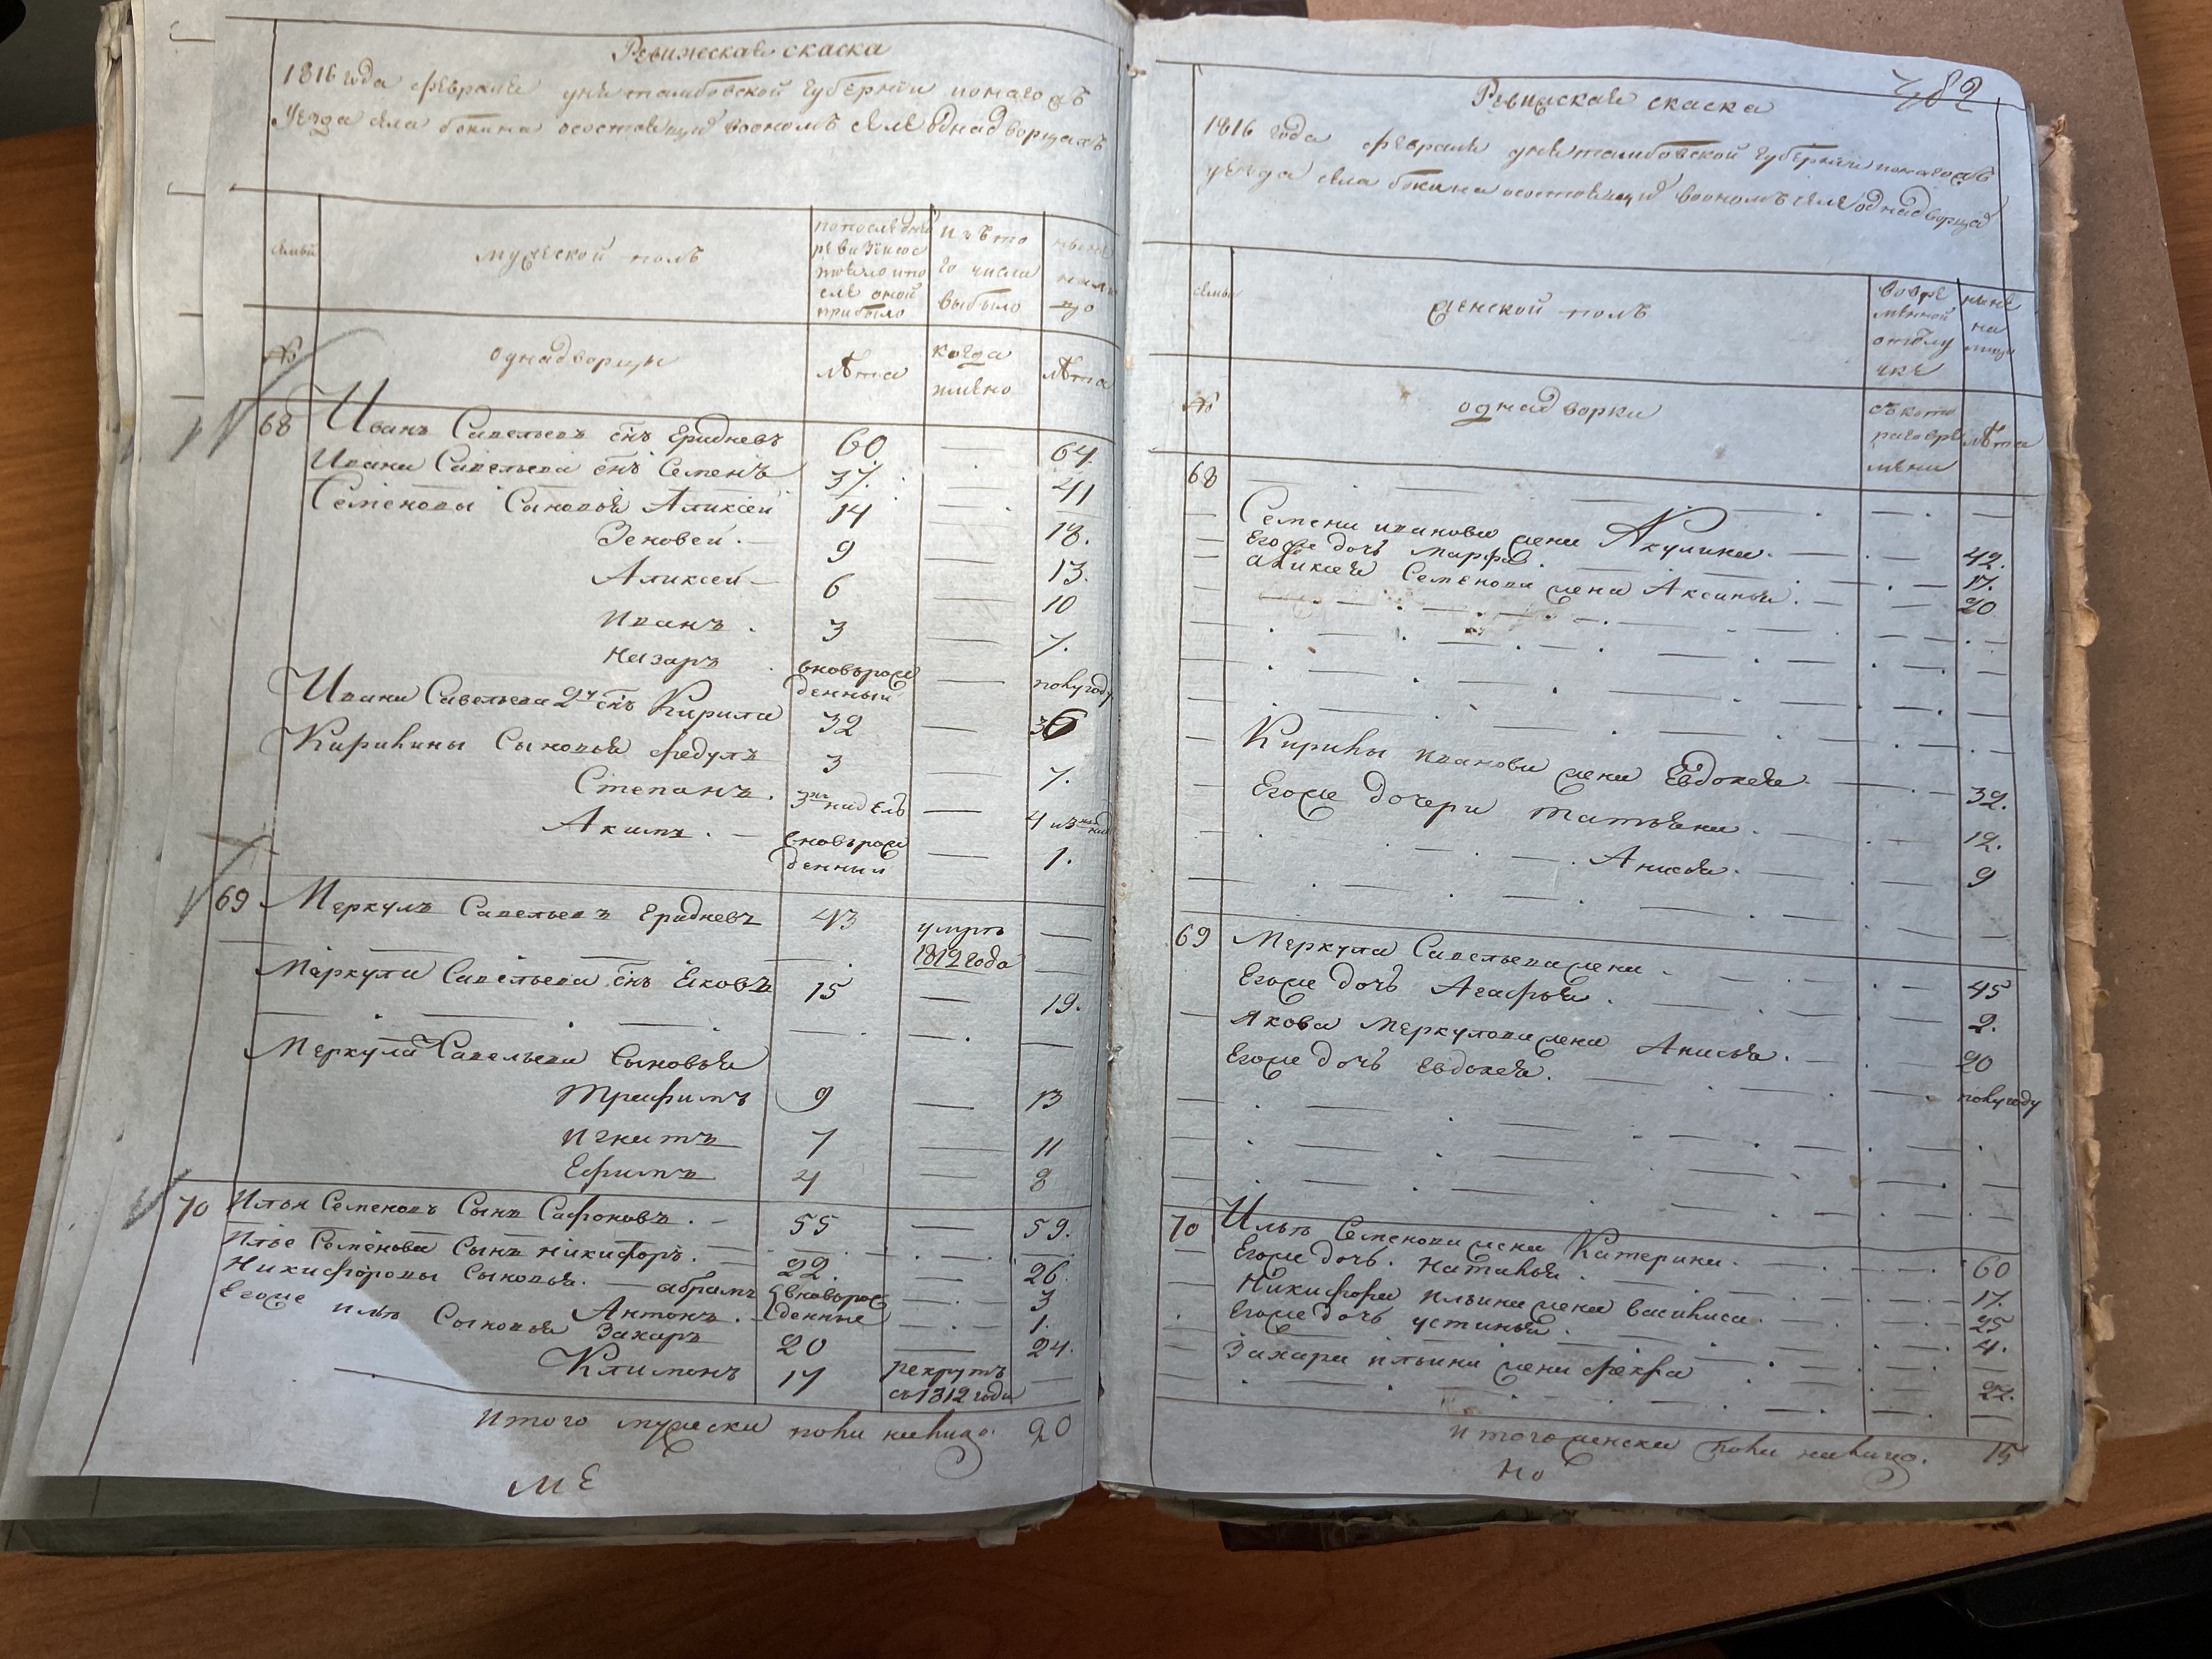 Ревижская скаска
1816 года февраля дня тамбовской губернии
уезда села бокина
семьи
мужеской полъ
изъ то
го числа
выбыло
№
однадворцы
лѣта
когда
имено
лѣта
68 Иванъ Савельевъ снъ 60 — 64.
Ивана Савельева снъ Семенъ 37. — 41
Семеновы Сыновья Аликсей 14 — 18.
Зеновей. — 9 — 13.
Аликсей — 6 — 10
Иванъ. 3 — 7.
Назаръ. вновьрож — полугоду
денный
Ивана Савельева 2й снъ Кирила 32 — 36
Кирилины Сыновья федулъ 3 — 7.
Степанъ. 3хъ нидель —
Акимъ. — вновьрож — 1.
денный
69 Меркулъ Савельевъ 43 умръ —
1812 года
Меркула Савельева снъ Ековъ 15 — 19.
Меркула Савельева Сыновья
Трифимъ 9 — 13
Игнитъ 7 — 11
Ефимъ 4 — 8
70 Илья Семеновъ Сынъ Сафоновъ. — 55 — 59.
Илье Семенова Сынъ Никифоръ. — 22. — 26.
Никифоровы Сыновья. — абрамъ вноворож — 3
Антонъ. денные — 1.
Егоже илье Сыновья Захаръ 20 — 24.
Климонъ 17 рекрутъ —
съ 1812 года
итого мужеска пола налицо. 20
МЕ
482
Ревижская скаска
1816 года февраля дня тамбовской губернии
уезда села бокина
семьи
женской полъ
вовре
менной
отлу
чке
ныне
на
лицо
№
однадворки
съкото
раговре
мени
лѣта
68
Семена иванова жена Акулина. — 42.
Егоже дочь Марфа. — 17.
аликсея Семенова жена Аксинья. — 20
Кирилы иванова жена Евдокея — 32.
Егоже дочери татьяна. — 12.
Анисья. — 9
69 Меркула Савельева жена. — 45
Егоже дочь Агафья. — 2.
Якова Меркулова жена Анисья. — 20
Егоже дочь Евдокея. — полугоду
70 Илье Семенова жена Катерина. — 60
Егоже дочь. Наталья. — 17.
Никифора ильина жена василиса. — 25
Егоже дочь устинья. — 4.
Захара ильина жена фекла — 22.
итого женска пола налицо. 15
но